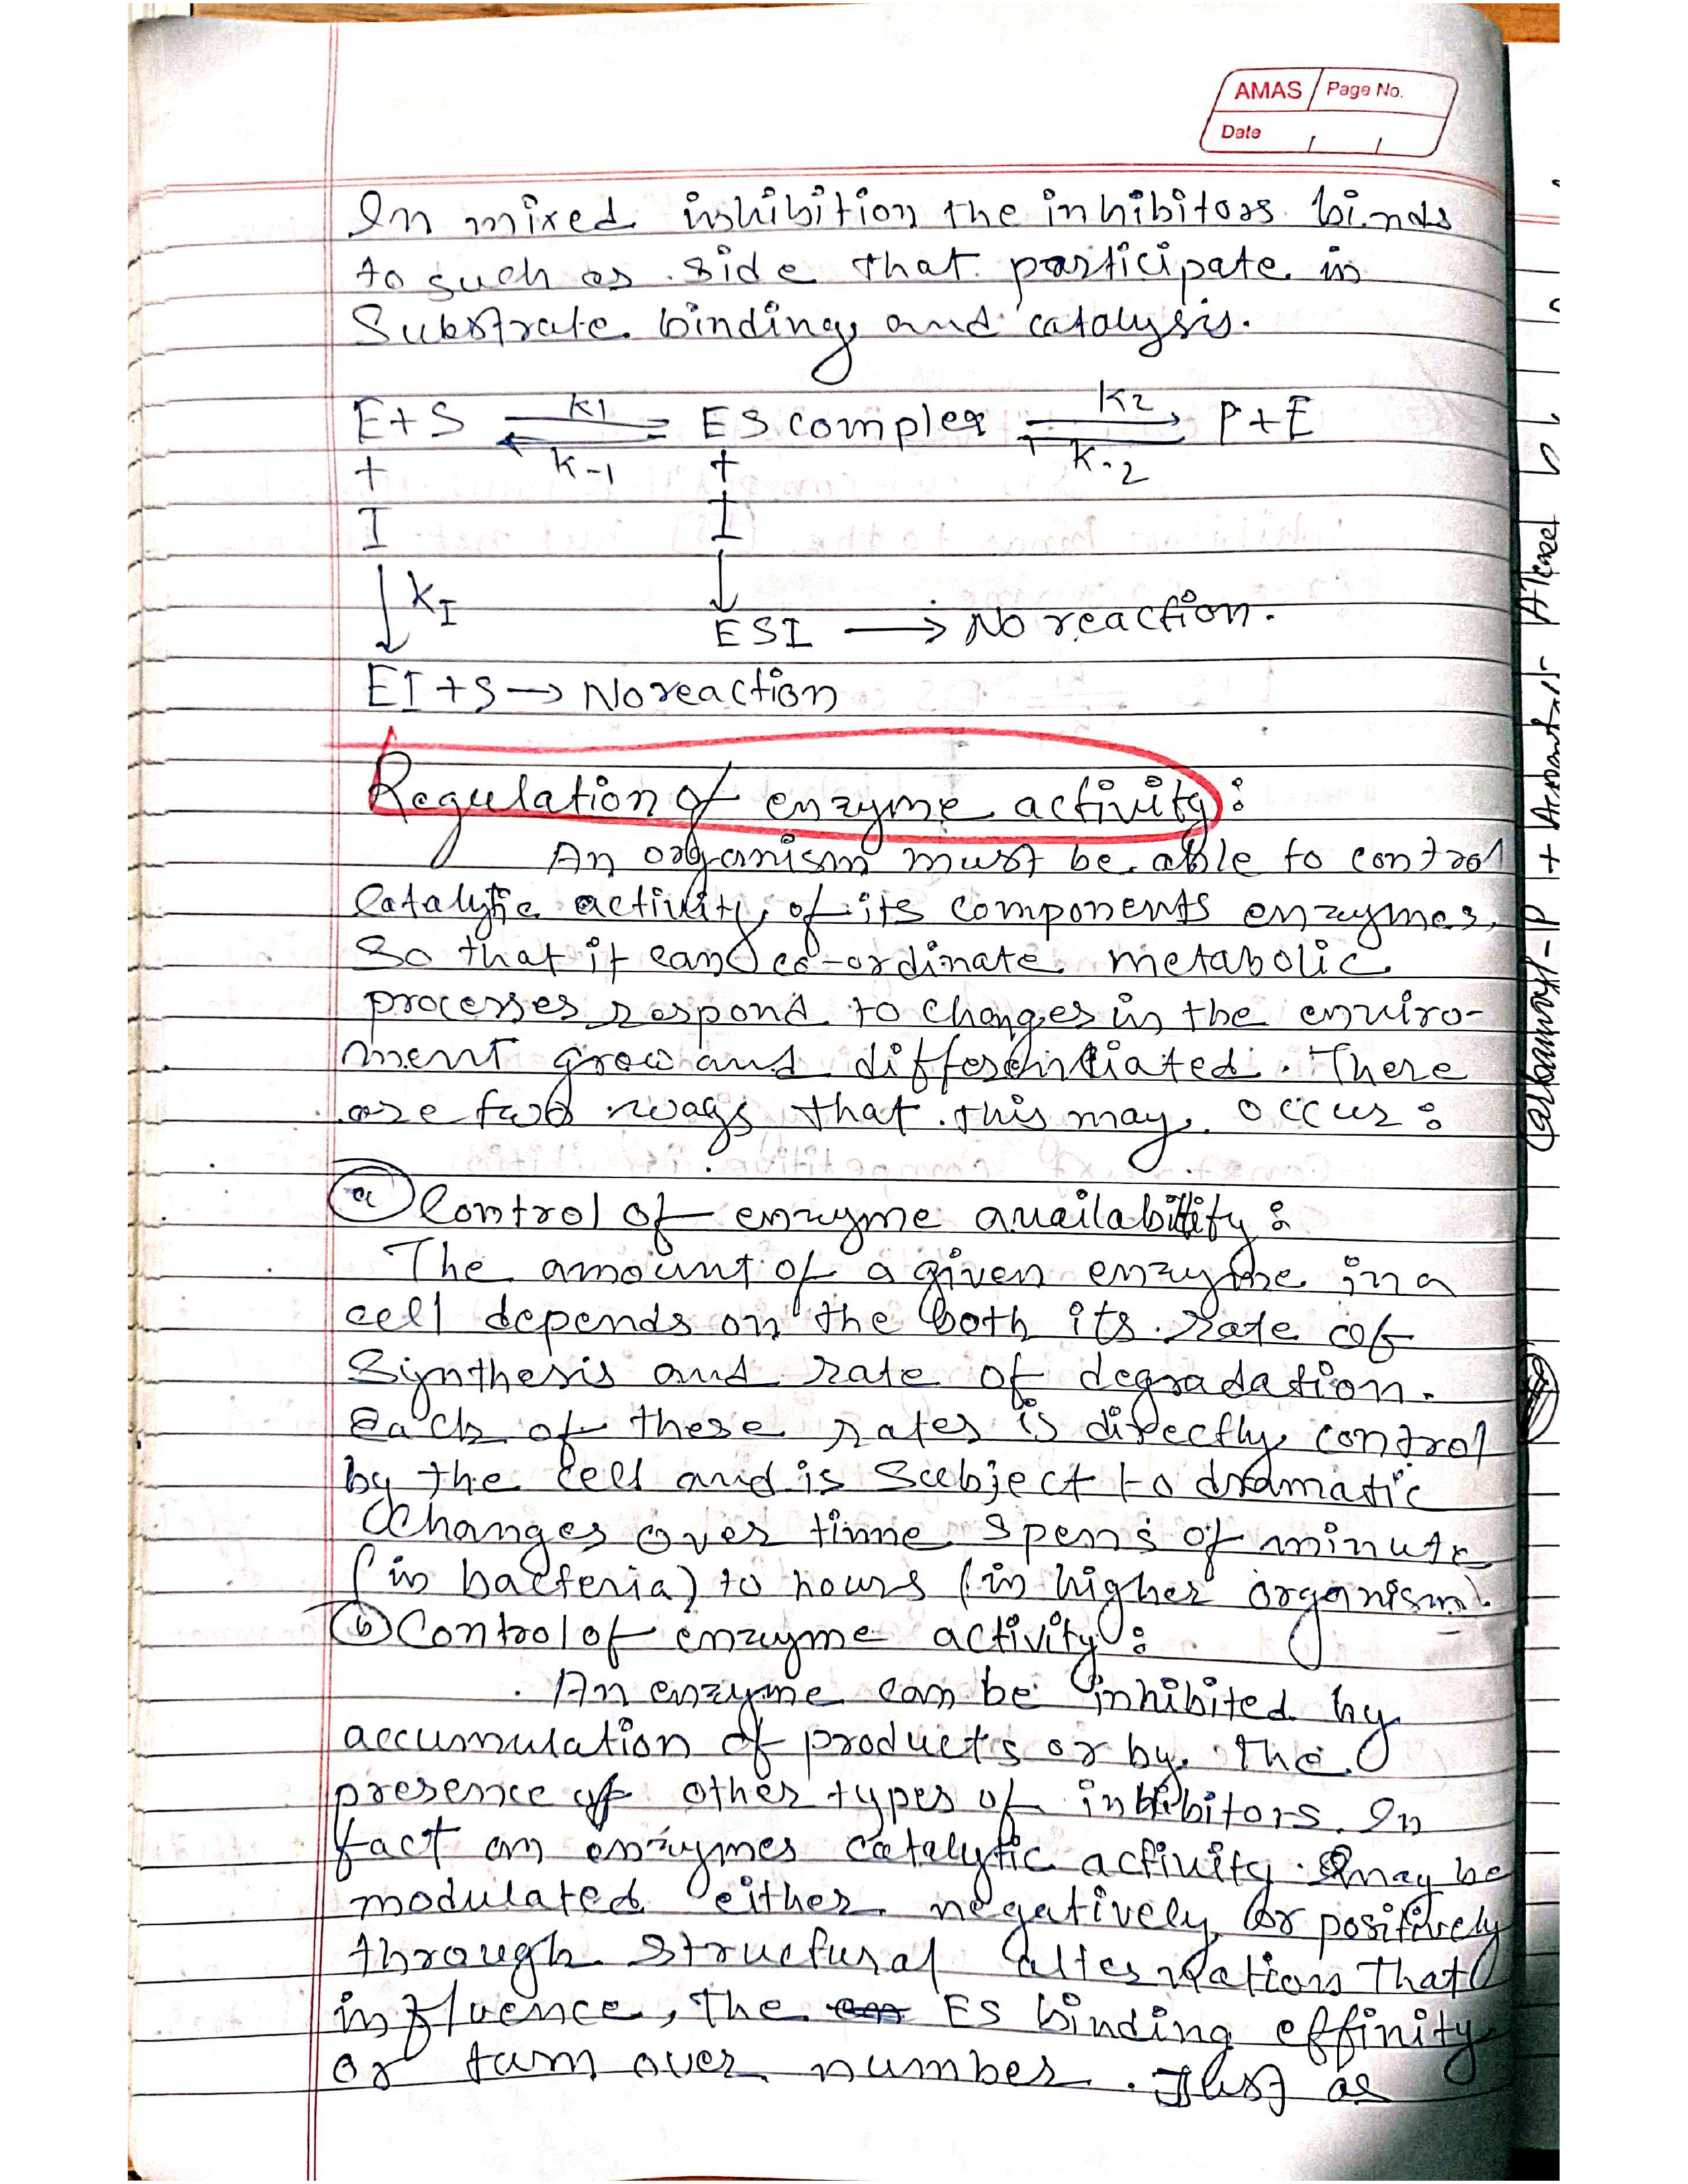 AMAS Page No.
Date / /
In mixed inhibition the inhibitors binds
to such as side that participate in
Substrate binding and catalysis.
E+S ⇌ ES complex ⇌ P+E
K1 K2
K-1 K-2
+ +
I I
↓ KI ↓
ESI → No reaction.
EI+S → No reaction
Regulation of enzyme activity:
An organism must be able to control
Catalytic activity, of its components enzymes,
So that it can co-ordinate metabolic
processes, respond to changes in the enviro-
ment grow and differentiated. There
are two ways that this may occur:
(a) Control of enzyme availability:
The amount of a given enzyme in a
cell depends on the both its rate of
Synthesis and rate of degradation.
Each of these rates is directly control
by the cell and is Subject to dramatic
Changes over time spens of minute
(in bacteria) to hours (in higher organism).
(b) Control of enzyme activity:
An enzyme can be inhibited by
accumulation of products or by the
presence of other types of inhibitors. In
fact an enzymes catalytic activity may be
modulated either negatively or positively
through structural alternations that
influence, the ES binding effinity
or turn over number. Just as
Carbamoyl-P +